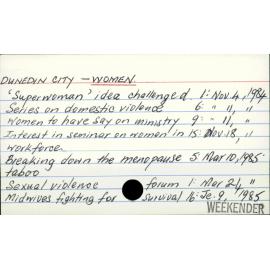 DUNEDIN CITY — WOMEN
'Superwoman' idea challenged 1: Nov 4, 1984
Series on domestic violence 6: " 11, "
Women to have say on ministry 9: " 11, "
Interest in seminar on women in 15: Nov 18, "
workforce
Breaking down the menopause 5: Mar 10, 1985
taboo
Sexual violence forum 1: Mar 24, "
Midwives fighting for survival 16: Je. 9, 1985
WEEKENDER